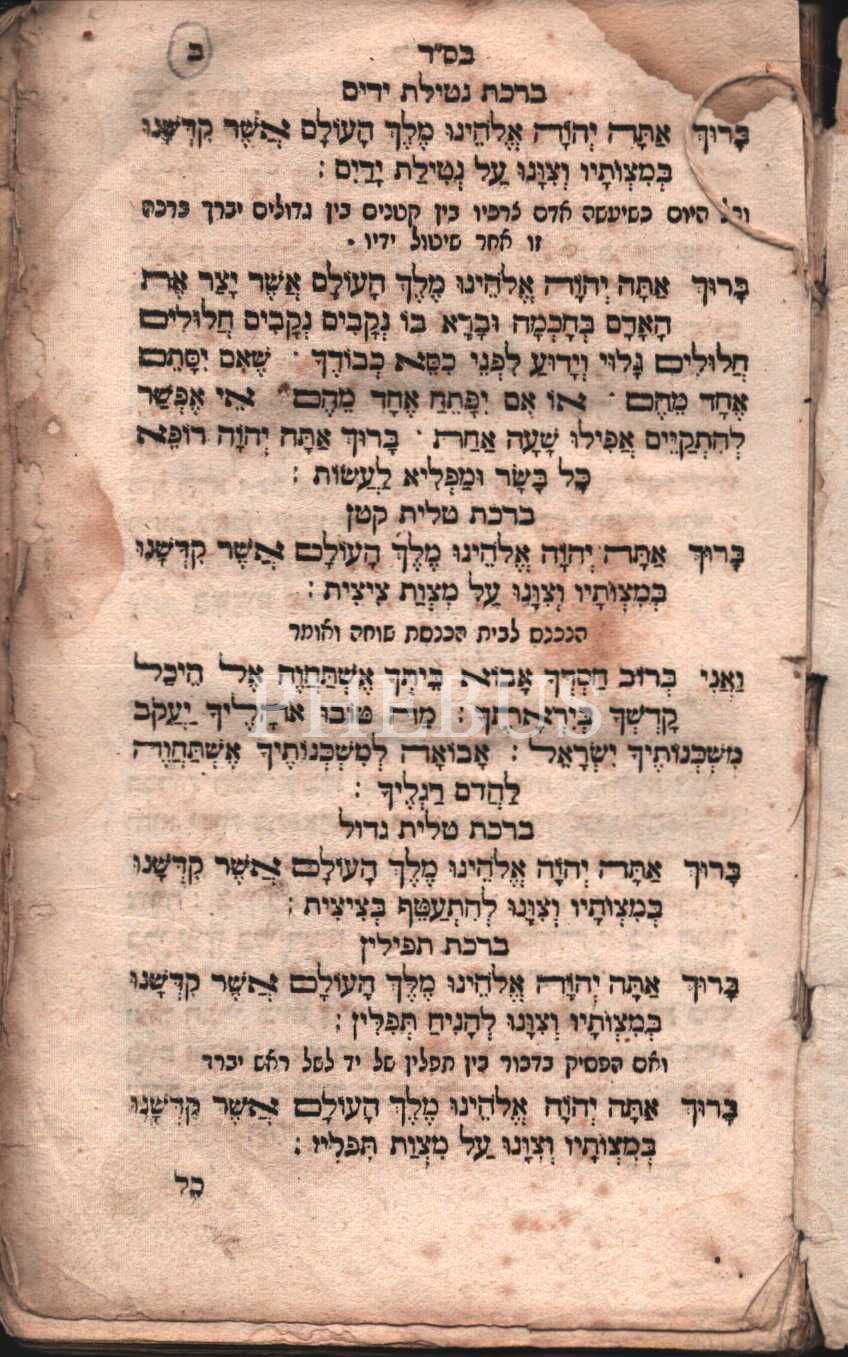 בס״ד ב
ברכת נטילת ידים
בָּרוּךְ אַתָּה יְהֹוָה אֱלֹהֵינוּ מֶלֶךְ הָעוֹלָם אֲשֶׁר קִדְּשָׁנוּ
בְּמִצְוֹתָיו וְצִוָּנוּ עַל נְטִילַת יָדַיִם :
וכל היום כשיעשה אדם צרכיו בין קטנים בין גדולים יברך ברכה
זו אחר שיטול ידיו .
בָּרוּךְ אַתָּה יְהֹוָה אֱלֹהֵינוּ מֶלֶךְ הָעוֹלָם אֲשֶׁר יָצַר אֶת
הָאָדָם בְּחָכְמָה וּבָרָא בוֹ נְקָבִים נְקָבִים חֲלוּלִים
חֲלוּלִים גָּלוּי וְיָדוּעַ לִפְנֵי כִסֵּא כְבוֹדֶךָ · שֶׁאִם יִסָּתֵם
אֶחָד מֵהֶם · אוֹ אִם יִפָּתֵחַ אֶחָד מֵהֶם · אִי אֶפְשַׁר
לְהִתְקַיֵּים אֲפִילוּ שָׁעָה אַחַת · בָּרוּךְ אַתָּה יְהֹוָה רוֹפֵא
כָל בָּשָׂר וּמַפְלִיא לַעֲשׂוֹת :
ברכת טלית קטן
בָּרוּךְ אַתָּה יְהֹוָה אֱלֹהֵינוּ מֶלֶךְ הָעוֹלָם אֲשֶׁר קִדְּשָׁנוּ
בְּמִצְוֹתָיו וְצִוָּנוּ עַל מִצְוַת צִיצִית :
הנכנס לבית הכנסת שוחה ואומר
וַאֲנִי בְּרוֹב חַסְדְּךָ אָבוֹא בֵיתְךָ אֶשְׁתַּחֲוֶה אֶל הֵיכַל
קָדְשְׁךָ בְּיִרְאָתְךָ : מַה טּוֹבוּ אֹהָלֶיךָ יַעֲקֹב
מִשְׁכְּנוֹתֶיךָ יִשְׂרָאֵל : אָבוֹאָה לְמִשְׁכְּנוֹתֶיךָ אֶשְׁתַּחֲוֶה
לַהֲדֹם רַגְלֶיךָ :
ברכת טלית גדול
בָּרוּךְ אַתָּה יְהֹוָה אֱלֹהֵינוּ מֶלֶךְ הָעוֹלָם אֲשֶׁר קִדְּשָׁנוּ
בְּמִצְוֹתָיו וְצִוָּנוּ לְהִתְעַטֵּף בְּצִיצִית :
ברכת תפילין
בָּרוּךְ אַתָּה יְהֹוָה אֱלֹהֵינוּ מֶלֶךְ הָעוֹלָם אֲשֶׁר קִדְּשָׁנוּ
בְּמִצְוֹתָיו וְצִוָּנוּ לְהָנִיחַ תְּפִלִּין :
ואם הפסיק בדבור בין תפלין של יד לשל ראש יברך
בָּרוּךְ אַתָּה יְהֹוָה אֱלֹהֵינוּ מֶלֶךְ הָעוֹלָם אֲשֶׁר קִדְּשָׁנוּ
בְּמִצְוֹתָיו וְצִוָּנוּ עַל מִצְוַת תְּפִלִּין :
כָל
PHEBUS